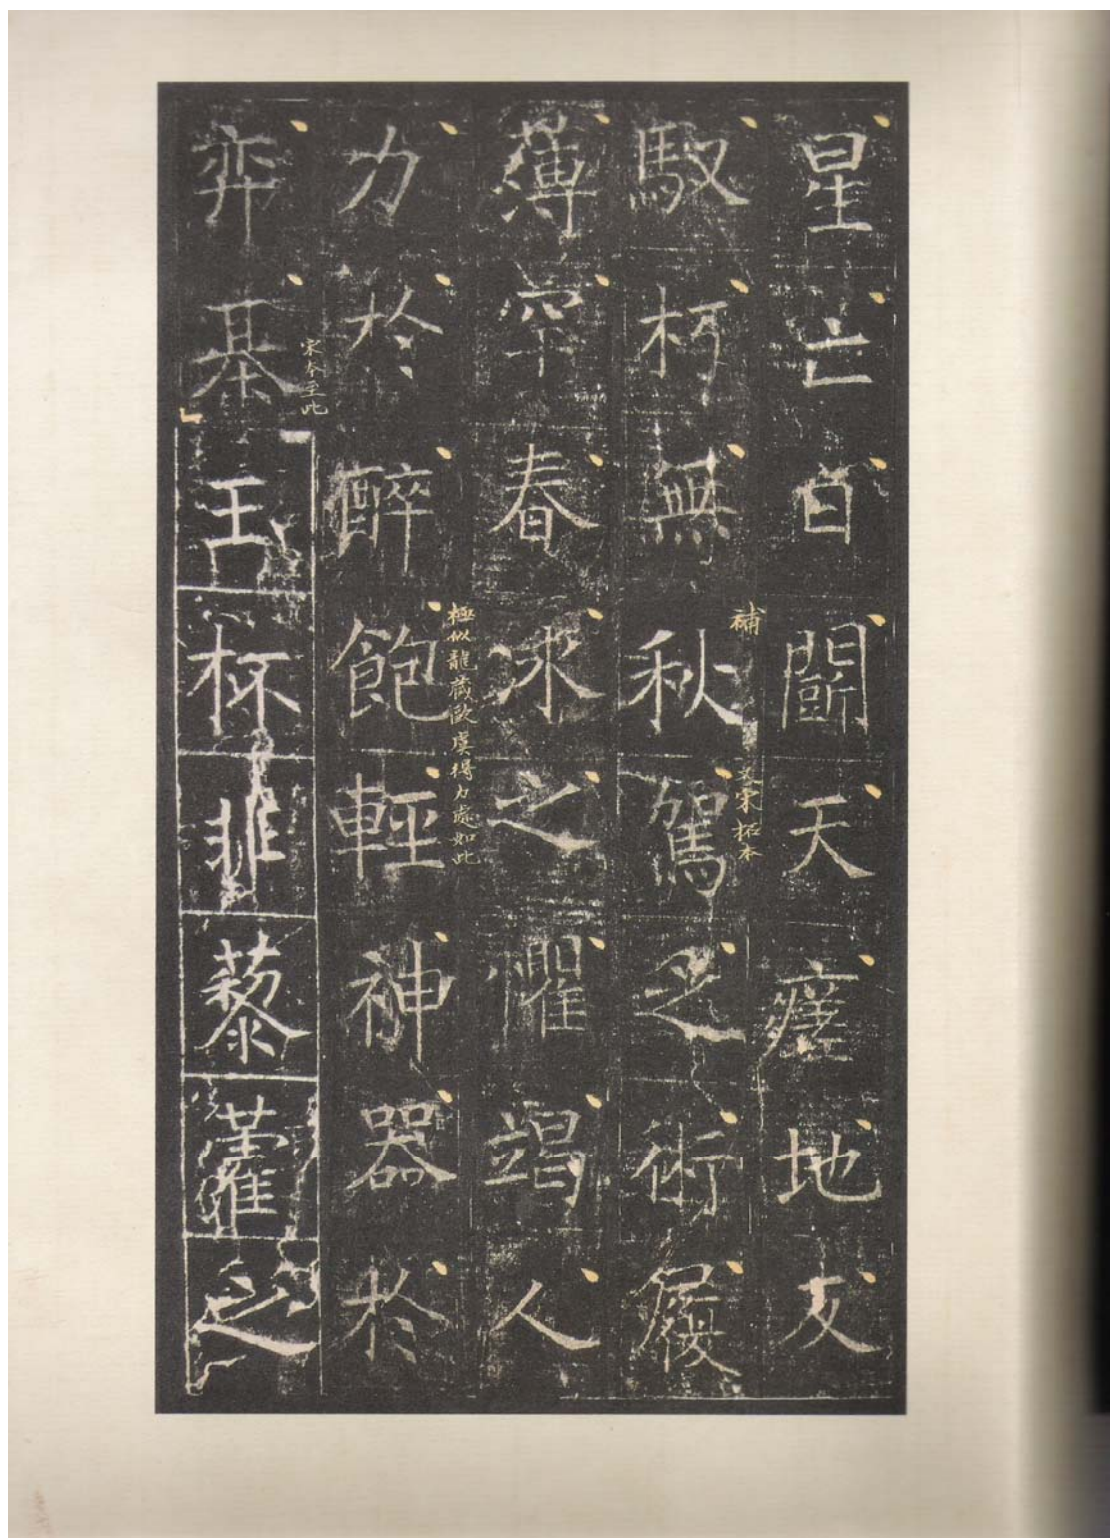 星亡日鬭天瘥地友
補
宋拓本
馭朽無秋駕之術履
薄罕春氷之懼竭人
極似龍藏歐虞得力處如此
力於醉飽輕神器於
宋本至此
弈棊玉杯非藜藿之